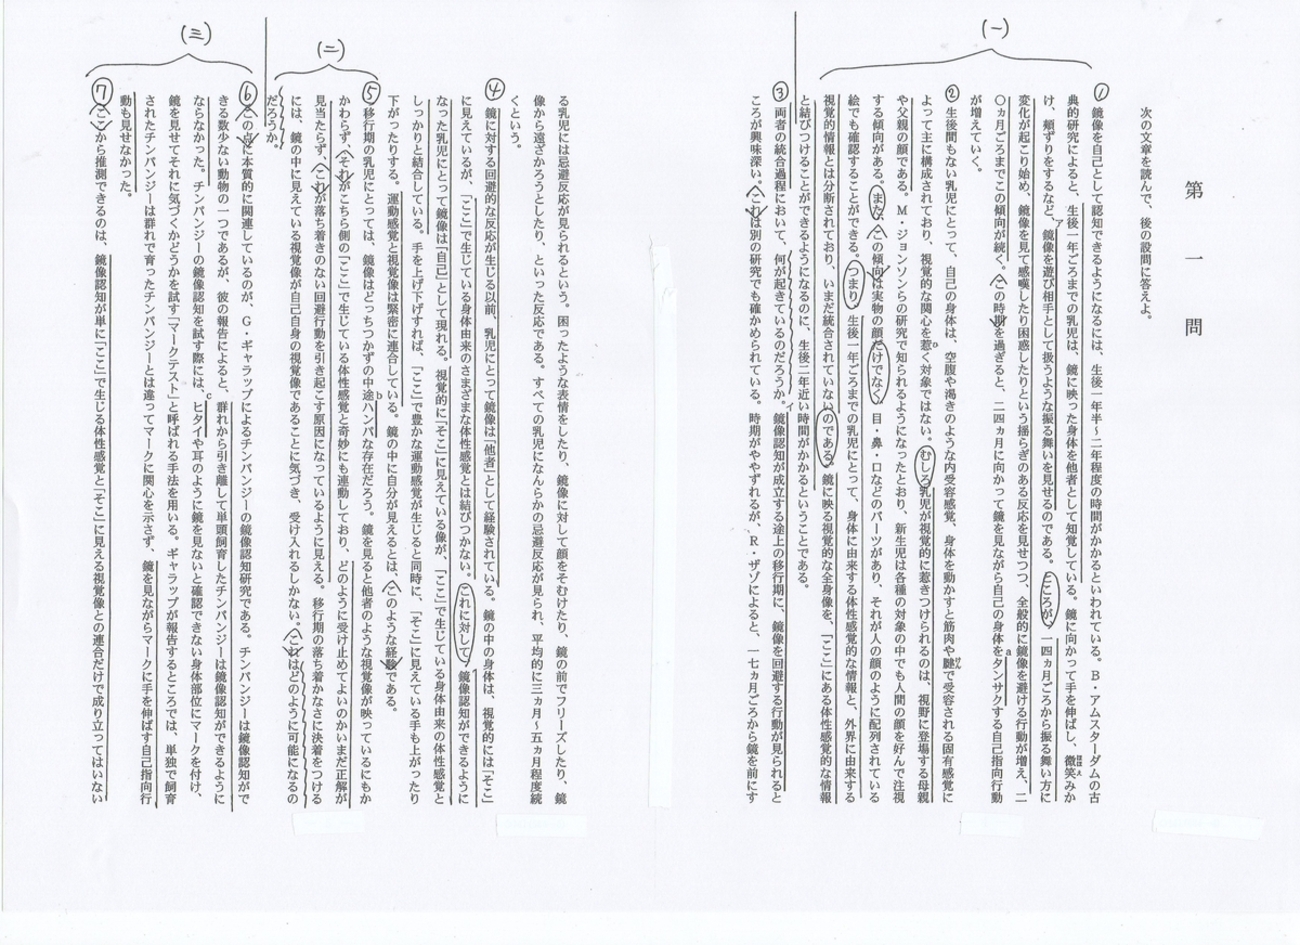 第一問
次の文章を読んで、後の設問に答えよ。
(一)
① 鏡像を自己として認知できるようになるには、生後一年半～二年程度の時間がかかるといわれている。B・アムスターダムの古
典的研究によると、生後一年ごろまでの乳児は、鏡に映った身体を他者として知覚している。鏡に向かって手を伸ばし、微笑みか
け、頰ずりをするなど、ア鏡像を遊び相手として扱うような振る舞いを見せるのである。ところが、一四ヵ月ごろから振る舞い方に
変化が起こり始め、鏡像を見て感嘆したり困惑したりという揺らぎのある反応を見せつつ、全般的に鏡像を避ける行動が増え、二
〇ヵ月ごろまでこの傾向が続く。この時期を過ぎると、二四ヵ月に向かって鏡を見ながら自己の身体をaタンサクする自己指向行動
が増えていく。
② 生後間もない乳児にとって、自己の身体は、空腹や渇きのような内受容感覚、身体を動かすと筋肉や腱で受容される固有感覚に
よって主に構成されており、視覚的な関心を惹く対象ではない。むしろ乳児が視覚的に惹きつけられるのは、視野に登場する母親
や父親の顔である。M・ジョンソンらの研究で知られるようになったとおり、新生児は各種の対象の中でも人間の顔を好んで注視
する傾向がある。また、この傾向は実物の顔だけでなく、目・鼻・口などのパーツがあり、それが人の顔のように配列されている
絵でも確認することができる。つまり、生後一年ごろまでの乳児にとって、身体に由来する体性感覚的な情報と、外界に由来する
視覚的情報とは分断されており、いまだ統合されていないのである。鏡に映る視覚的な全身像を、「ここ」にある体性感覚的な情報
と結びつけることができるようになるのに、生後二年近い時間がかかるということである。
③ 両者の統合過程において、何が起きているのだろうか。イ鏡像認知が成立する途上の移行期に、鏡像を回避する行動が見られると
ころが興味深い。これは別の研究でも確かめられている。時期がややずれるが、R・ザゾによると、一七ヵ月ごろから鏡を前にす
る乳児には忌避反応が見られるという。困ったような表情をしたり、鏡像に対して顔をそむけたり、鏡の前でフリーズしたり、鏡
像から遠ざかろうとしたり、といった反応である。すべての乳児になんらかの忌避反応が見られ、平均的に三ヵ月～五ヵ月程度続
くという。
④ 鏡に対する回避的な反応が生じる以前、乳児にとって鏡像は「他者」として経験されている。鏡の中の身体は、視覚的には「そこ」
に見えているが、「ここ」で生じている身体由来のさまざまな体性感覚とは結びつかない。これに対して、鏡像認知ができるように
なった乳児にとって鏡像は「自己」として現れる。視覚的に「そこ」に見えている像が、「ここ」で生じている身体由来の体性感覚と
しっかりと結合している。手を上げ下げすれば、「ここ」で豊かな運動感覚が生じると同時に、「そこ」に見えている手も上がったり
下がったりする。運動感覚と視覚像は緊密に連合している。鏡の中に自分が見えるとは、このような経験である。
(二)
⑤ 移行期の乳児にとっては、鏡像はどっちつかずの中途bハンパな存在だろう。鏡を見ると他者のような視覚像が映っているにもか
かわらず、それがこちら側の「ここ」で生じている体性感覚と奇妙にも連動しており、どのように受け止めてよいのかいまだ正解が
見当たらず、これが落ち着きのない回避行動を引き起こす原因になっているように見える。移行期の落ち着かなさに決着をつける
には、鏡の中に見えている視覚像が自己自身の視覚像であることに気づき、受け入れるしかない。これはどのように可能になるの
だろうか。
(三)
⑥ この点に本質的に関連しているのが、G・ギャラップによるチンパンジーの鏡像認知研究である。チンパンジーは鏡像認知がで
きる数少ない動物の一つであるが、彼の報告によると、群れから引き離して単頭飼育したチンパンジーは鏡像認知ができるように
ならなかった。チンパンジーの鏡像認知を試す際には、cヒタイや耳のように鏡を見ないと確認できない身体部位にマークを付け、
鏡を見せてそれに気づくかどうかを試す「マークテスト」と呼ばれる手法を用いる。ギャラップが報告するところでは、単独で飼育
されたチンパンジーは群れで育ったチンパンジーとは違ってマークに関心を示さず、鏡を見ながらマークに手を伸ばす自己指向行
動も見せなかった。
⑦ ここから推測できるのは、鏡像認知が単に「ここ」で生じる体性感覚と「そこ」に見える視覚像との連合だけで成り立ってはいない